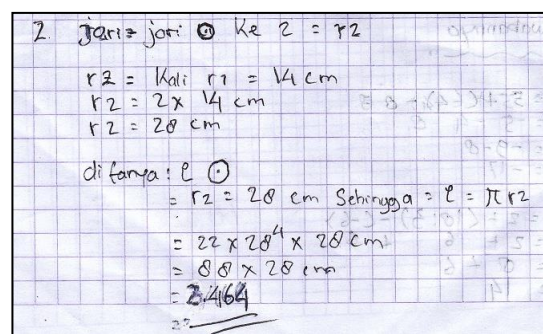 2. Jari-jari ⊙ ke 2 = r2
r2 = kali r1 = 14 cm
r2 = 2x 14 cm
r2 = 28 cm
ditanya : l ⊙
= r2 = 28 cm Sehingga = l = π r2
= 22 x 28⁴ x 28 cm
= 88 x 28 cm
= 2.464